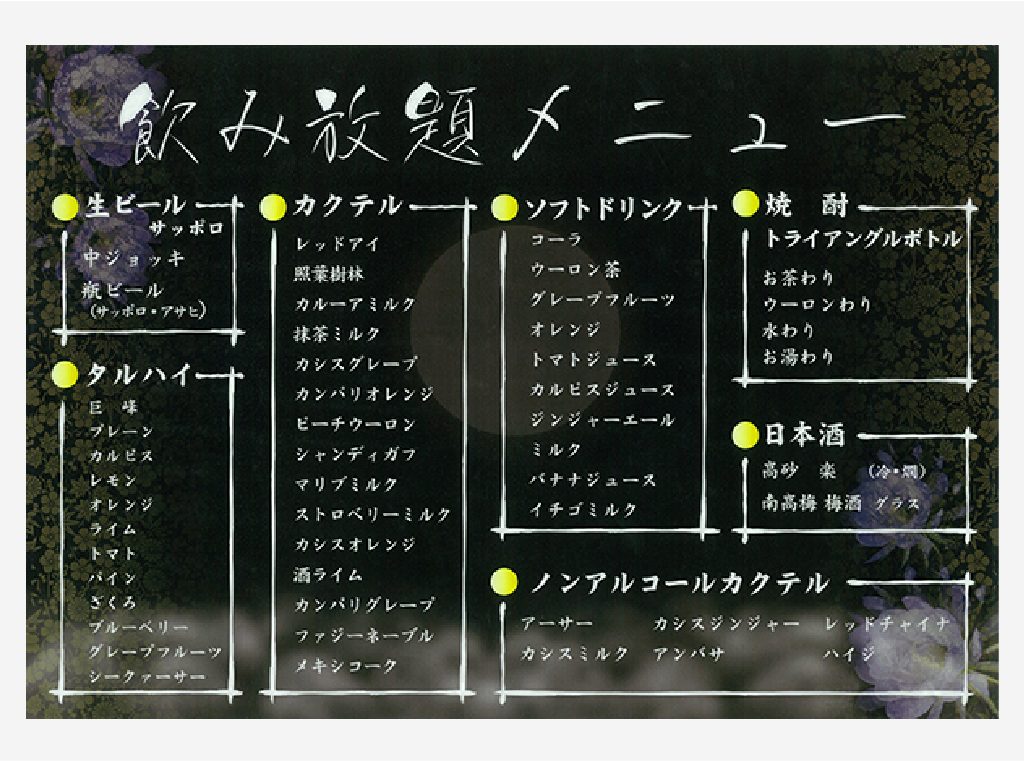 飲み放題メニュー
生ビール
サッポロ
中ジョッキ
瓶ビール
(サッポロ・アサヒ)
タルハイ
巨峰
プレーン
カルピス
レモン
オレンジ
ライム
トマト
パイン
ざくろ
ブルーベリー
グレープフルーツ
シークァーサー
カクテル
レッドアイ
照葉樹林
カルーアミルク
抹茶ミルク
カシスグレープ
カンパリオレンジ
ピーチウーロン
シャンディガフ
マリブミルク
ストロベリーミルク
カシスオレンジ
酒ライム
カンパリグレープ
ファジーネーブル
メキシコーク
ソフトドリンク
コーラ
ウーロン茶
グレープフルーツ
オレンジ
トマトジュース
カルピスジュース
ジンジャーエール
ミルク
バナナジュース
イチゴミルク
焼酎
トライアングルボトル
お茶わり
ウーロンわり
水わり
お湯わり
日本酒
高砂 楽 (冷・燗)
南高梅 梅酒 グラス
ノンアルコールカクテル
アーサー カシスジンジャー レッドチャイナ
カシスミルク アンバサ ハイジ